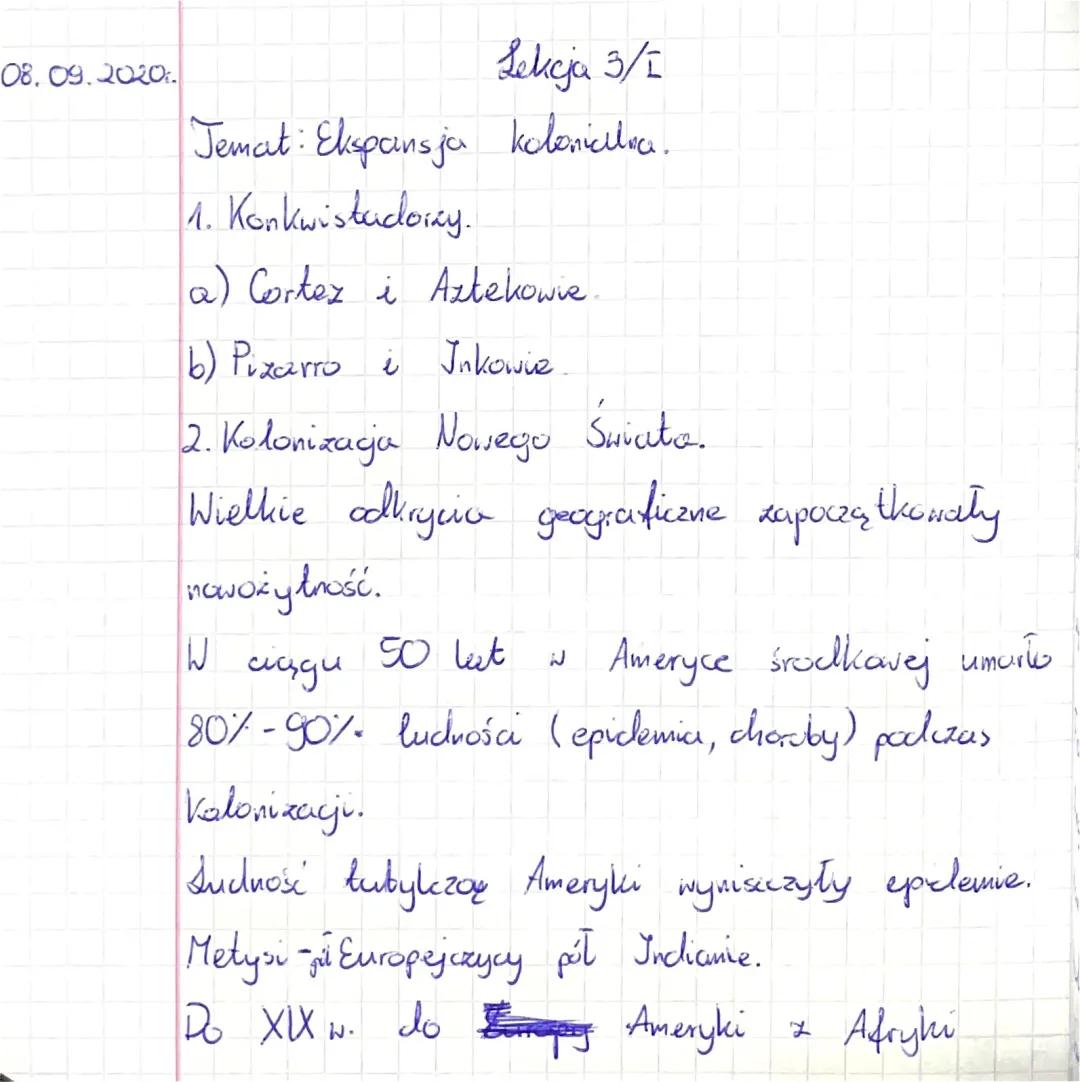 Lekcja 3/I
08.09.2020r.
Temat: Ekspansja kolonialna.
1. Konkwistadorzy.
a) Cortez i Aztekowie.
b) Pizarro i Inkowie.
2. Kolonizacja Nowego Świata.
Wielkie odkrycia geograficzne zapoczątkowały
nowożytność.
W ciągu 50 lat w Ameryce środkowej umarło
80% - 90% ludności (epidemia, choroby) podczas
kolonizacji.
Ludność tubylczą Ameryki wyniszczyły epidemie.
Metysi - pół Europejczycy pół Indianie.
Do XIX w. do Ameryki z Afryki